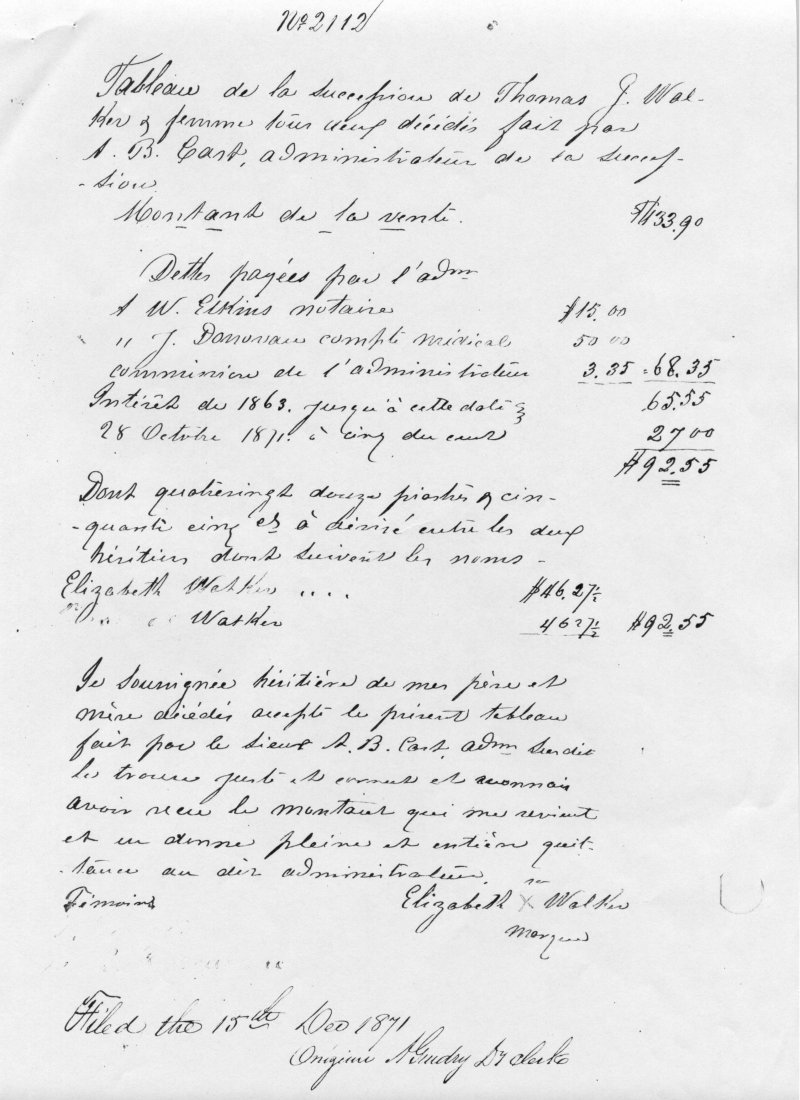 No 2112
Tableau de la succession de Thomas J. Wal-
ker & femme tous deux décédés fait par
A. B. Cart, administrateur de la succes-
-sion
Montant de la vente. $133.90
Dettes payées par l'adm
A W. Elkins notaire $15.00
" J. Donovan compte médical 50 00
commission de l'administrateur 3.35 68.35
65.55
Intérêt de 1863. jusqu'à cette date
28 Octobre 1871. à cinq du cent 27 00
$92.55
Dont quatrevingt douze piastres & cin-
-quante cinq cts à divisé entre les deux
héritiers dont suivent les noms -
Elizabeth Walker .... $46.27½
Walker 46 27½ $92.55
Je soussignée héritière de mes père et
mère décédés accepte le présent tableau
fait par le sieur A. B. Cart, adm susdit
le trouve juste et correct et reconnais
avoir recu le montant qui me revient
et en donne pleine et entière quit-
-tance au dit administrateur.
Témoins Elizabeth X Walker
marque
Filed the 15th Dec 1871
A Gudry Dy clerk